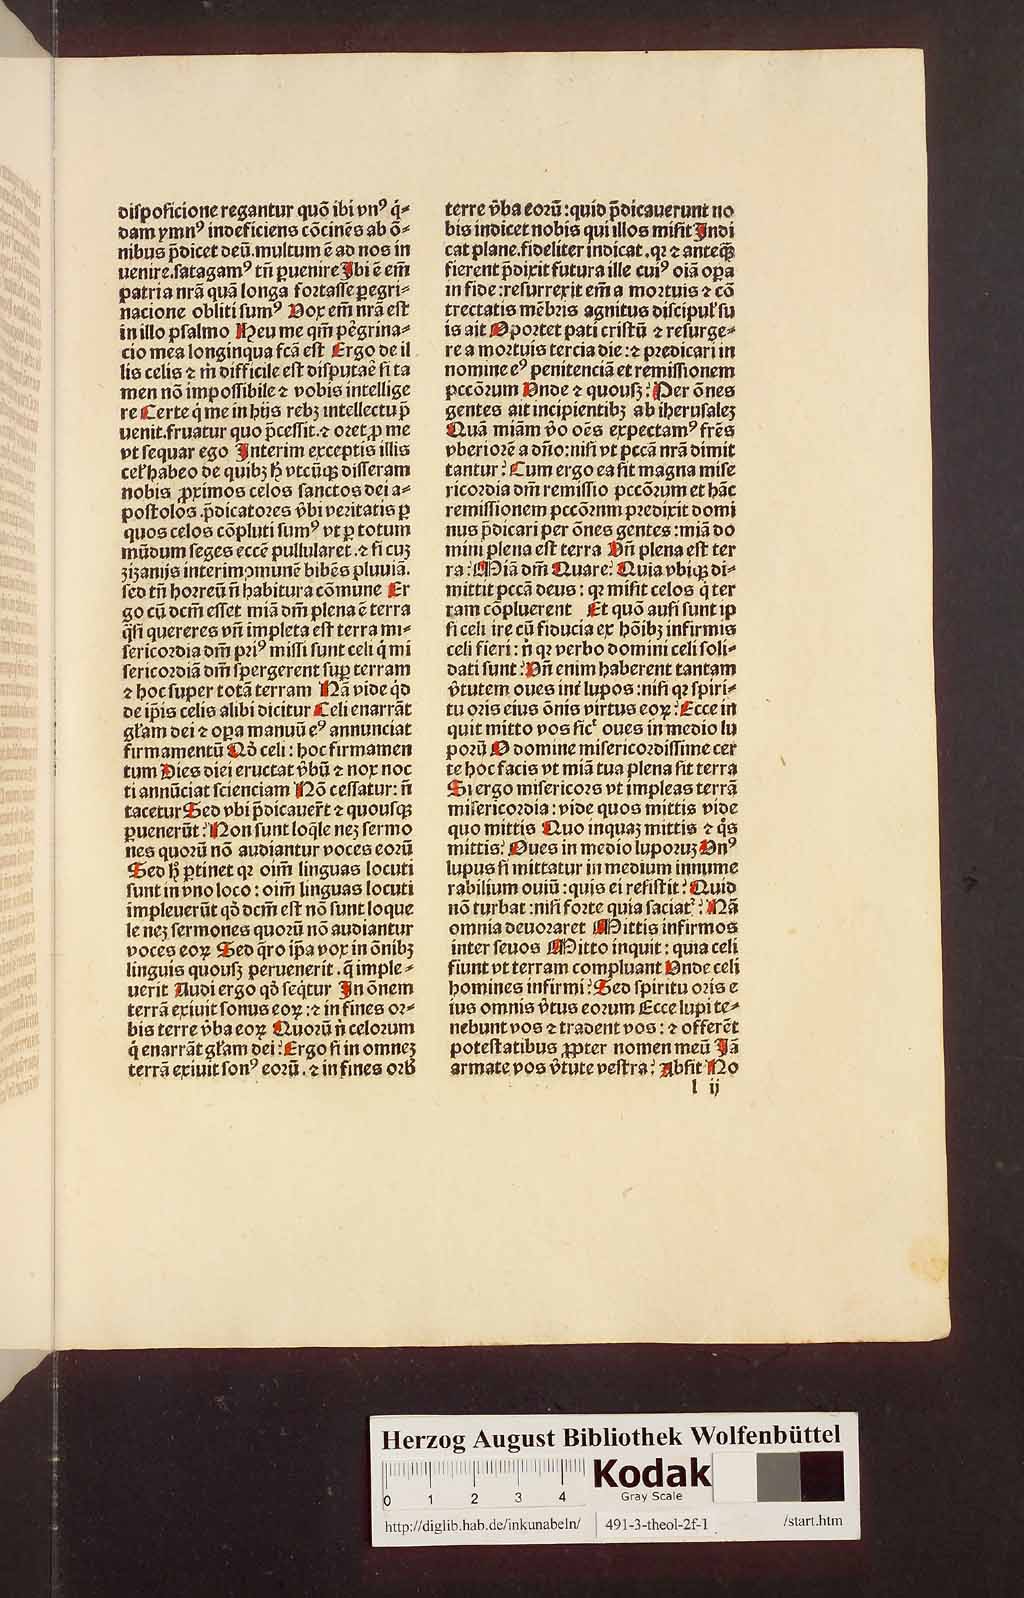 disposicione regantur quō ibi vnꝰ q̇-
dam ymnꝰ indeficiens cōcinēs ab ō-
nibus p̄dicet deū. multum ē ad nos in
uenire. satagamꝰ tn̄ ꝑuenire Ibi ē em̄
patria nrā quā longa fortasse ꝑegri-
nacione obliti sumꝰ Vox em̄ nrā est
in illo psalmo Heu me qm̄ pegrina-
cio mea longinqua fcā est Ergo de il
lis celis ⁊ m̄ difficile est disputaē si ta
men nō impossibile ⁊ vobis intellige
re Certe q̇ me in hijs rebꝫ intellectu p̄
uenit. fruatur quo p̄cessit. ⁊ oret ꝓ me
vt sequar ego Interim exceptis illis
cel̄ habeo de quibꝫ vtcūqꝫ disseram
nobis ꝓximos celos sanctos dei a-
postolos. p̄dicatores v̄bi veritatis ꝑ
quos celos cōpluti sumꝰ vt ꝑ totum
mūdum seges eccē pullularet. ⁊ si cuꝫ
zizanijs interim ꝯmunē bibēs pluuiā.
sed tn̄ horreū n̄ habitura cōmune Er
go cū dcm̄ esset miā dm̄ plena ē terra
q̄si quereres vn̄ impleta est terra mi-
sericordia dm̄ priꝰ missi sunt celi q̇ mi
sericordiā dm̄ spergerent suꝑ terram
⁊ hoc super totā terram Nā vide q̇d
de ip̄is celis alibi dicitur Celi enarrāt
gl̄am dei ⁊ oꝑa manuū eꝰ annunciat
firmamentū Qd̄ celi: hoc firmamen
tum Dies diei eructat v̄bū ⁊ nox noc
ti annūciat scienciam Nō cessatur: n̄
tacetur Sed vbi p̄dicauer̄t ⁊ quousqꝫ
ꝑuenerūt: Non sunt loq̄le neꝫ sermo
nes quorū nō audiantur voces eorū
Sed ꝑtinet qꝛ oim̄ linguas locuti
sunt in vno loco: oim̄ linguas locuti
impleuerūt qd̄ dcm̄ est nō sunt loque
le neꝫ sermones quorū nō audiantur
voces eoꝝ Sed q̄ro ip̄a vox in ōnibꝫ
linguis quousꝫ peruenerit. q̄ imple-
uerit Audi ergo qd̄ seq̇tur In ōnem
terrā exiuit sonus eoꝝ: ⁊ in fines or-
bis terre v̄ba eoꝝ Quorū n̄ celorum
q̇ enarrāt gl̄am dei: Ergo si in omneꝫ
terrā exiuit sonꝰ eorū. ⁊ in fines orb̄
terre v̄ba eorū: quid p̄dicauerunt no
bis indicet nobis qui illos misit Indi
cat plane. fideliter indicat. qꝛ ⁊ anteqꝫ
fierent p̄dixit futura ille cuiꝰ oiā oꝑa
in fide: resurrexit em̄ a mortuis ⁊ cō
trectatis mēbris agnitus discipul̕ su
is ait Oportet pati cristū ⁊ resurge-
re a mortuis tercia die: ⁊ predicari in
nomine eꝰ penitenciā et remissionem
pccōrum Vnde ⁊ quousꝫ: Per ōnes
gentes ait incipientibꝫ ab iherusaleꝫ
Quā miām v̄o oēs expectamꝰ frēs
vberiorē a dn̄o: nisi vt pccā nrā dimit
tantur: Cum ergo ea sit magna mise
ricordia dm̄ remissio pccōrum et hāc
remissionem pccōrum predixit domi
nus p̄dicari per ōnes gentes: miā do
mini plena est terra Vn̄ plena est ter
ra: Miā dm̄ Quare: Quia vbiqꝫ di-
mittit pccā deus: qꝛ misit celos q̇ ter
ram cōpluerent Et quō ausi sunt ip
si celi ire cū fiducia ex hōibꝫ infirmis
celi fieri: n̄ qꝛ verbo domini celi soli-
dati sunt: Vn̄ enim haberent tantam
v̄tutem oues int̄ lupos: nisi qꝛ spiri-
tu oris eius ōnis virtus eoꝝ: Ecce in
quit mitto vos sic̄ oues in medio lu
porū O domine misericordissime cer
te hoc facis vt miā tua plena sit terra
Si ergo misericors vt impleas terrā
misericordia: vide quos mittis vide
quo mittis Quo inquaꝫ mittis ⁊ q̇s
mittis: Oues in medio luporuꝫ Vnꝰ
lupus si mittatur in medium innume
rabilium ouiū: quis ei resistit: Quid
nō turbat: nisi forte quia saciat̄: Nā
omnia deuoraret Mittis infirmos
inter seuos Mitto inquit: quia celi
fiunt vt terram compluant Vnde celi
homines infirmi: Sed spiritu oris e
ius omnis v̄tus eorum Ecce lupi te-
nebunt vos ⁊ tradent vos: ⁊ offerēt
potestatibus ꝓpter nomen meū Iā
armate vos v̄tute vestra: Absit No
l ij
Herzog August Bibliothek Wolfenbüttel
0 1 2 3 4
Kodak
Gray Scale
http://diglib.hab.de/inkunabeln/ 491-3-theol-2f-1 /start.htm